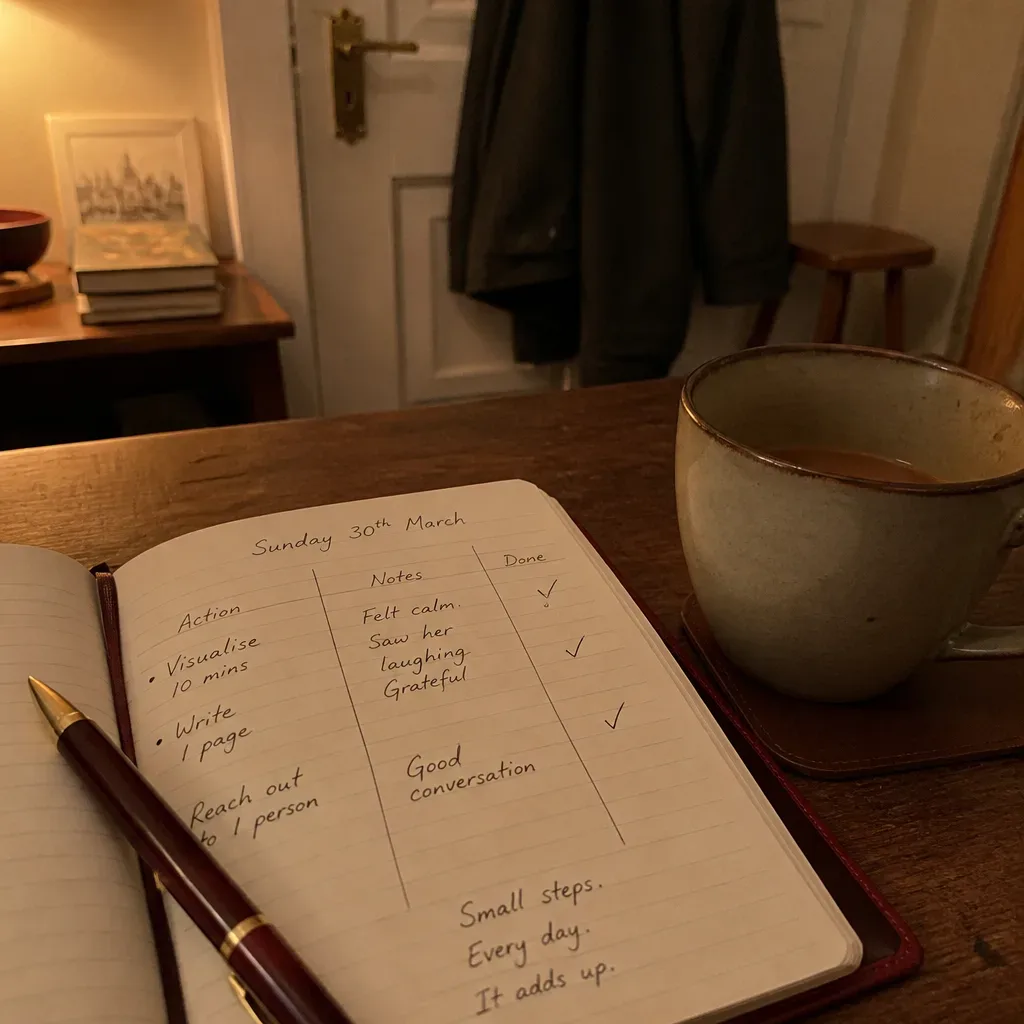 Sunday 30th March
Action
Notes
Done
• Visualise
10 mins
Felt calm.
Saw her
laughing
Grateful
✓
• Write
1 page
✓
Reach out
to 1 person
Good
conversation
✓
Small steps.
Every day.
It adds up.